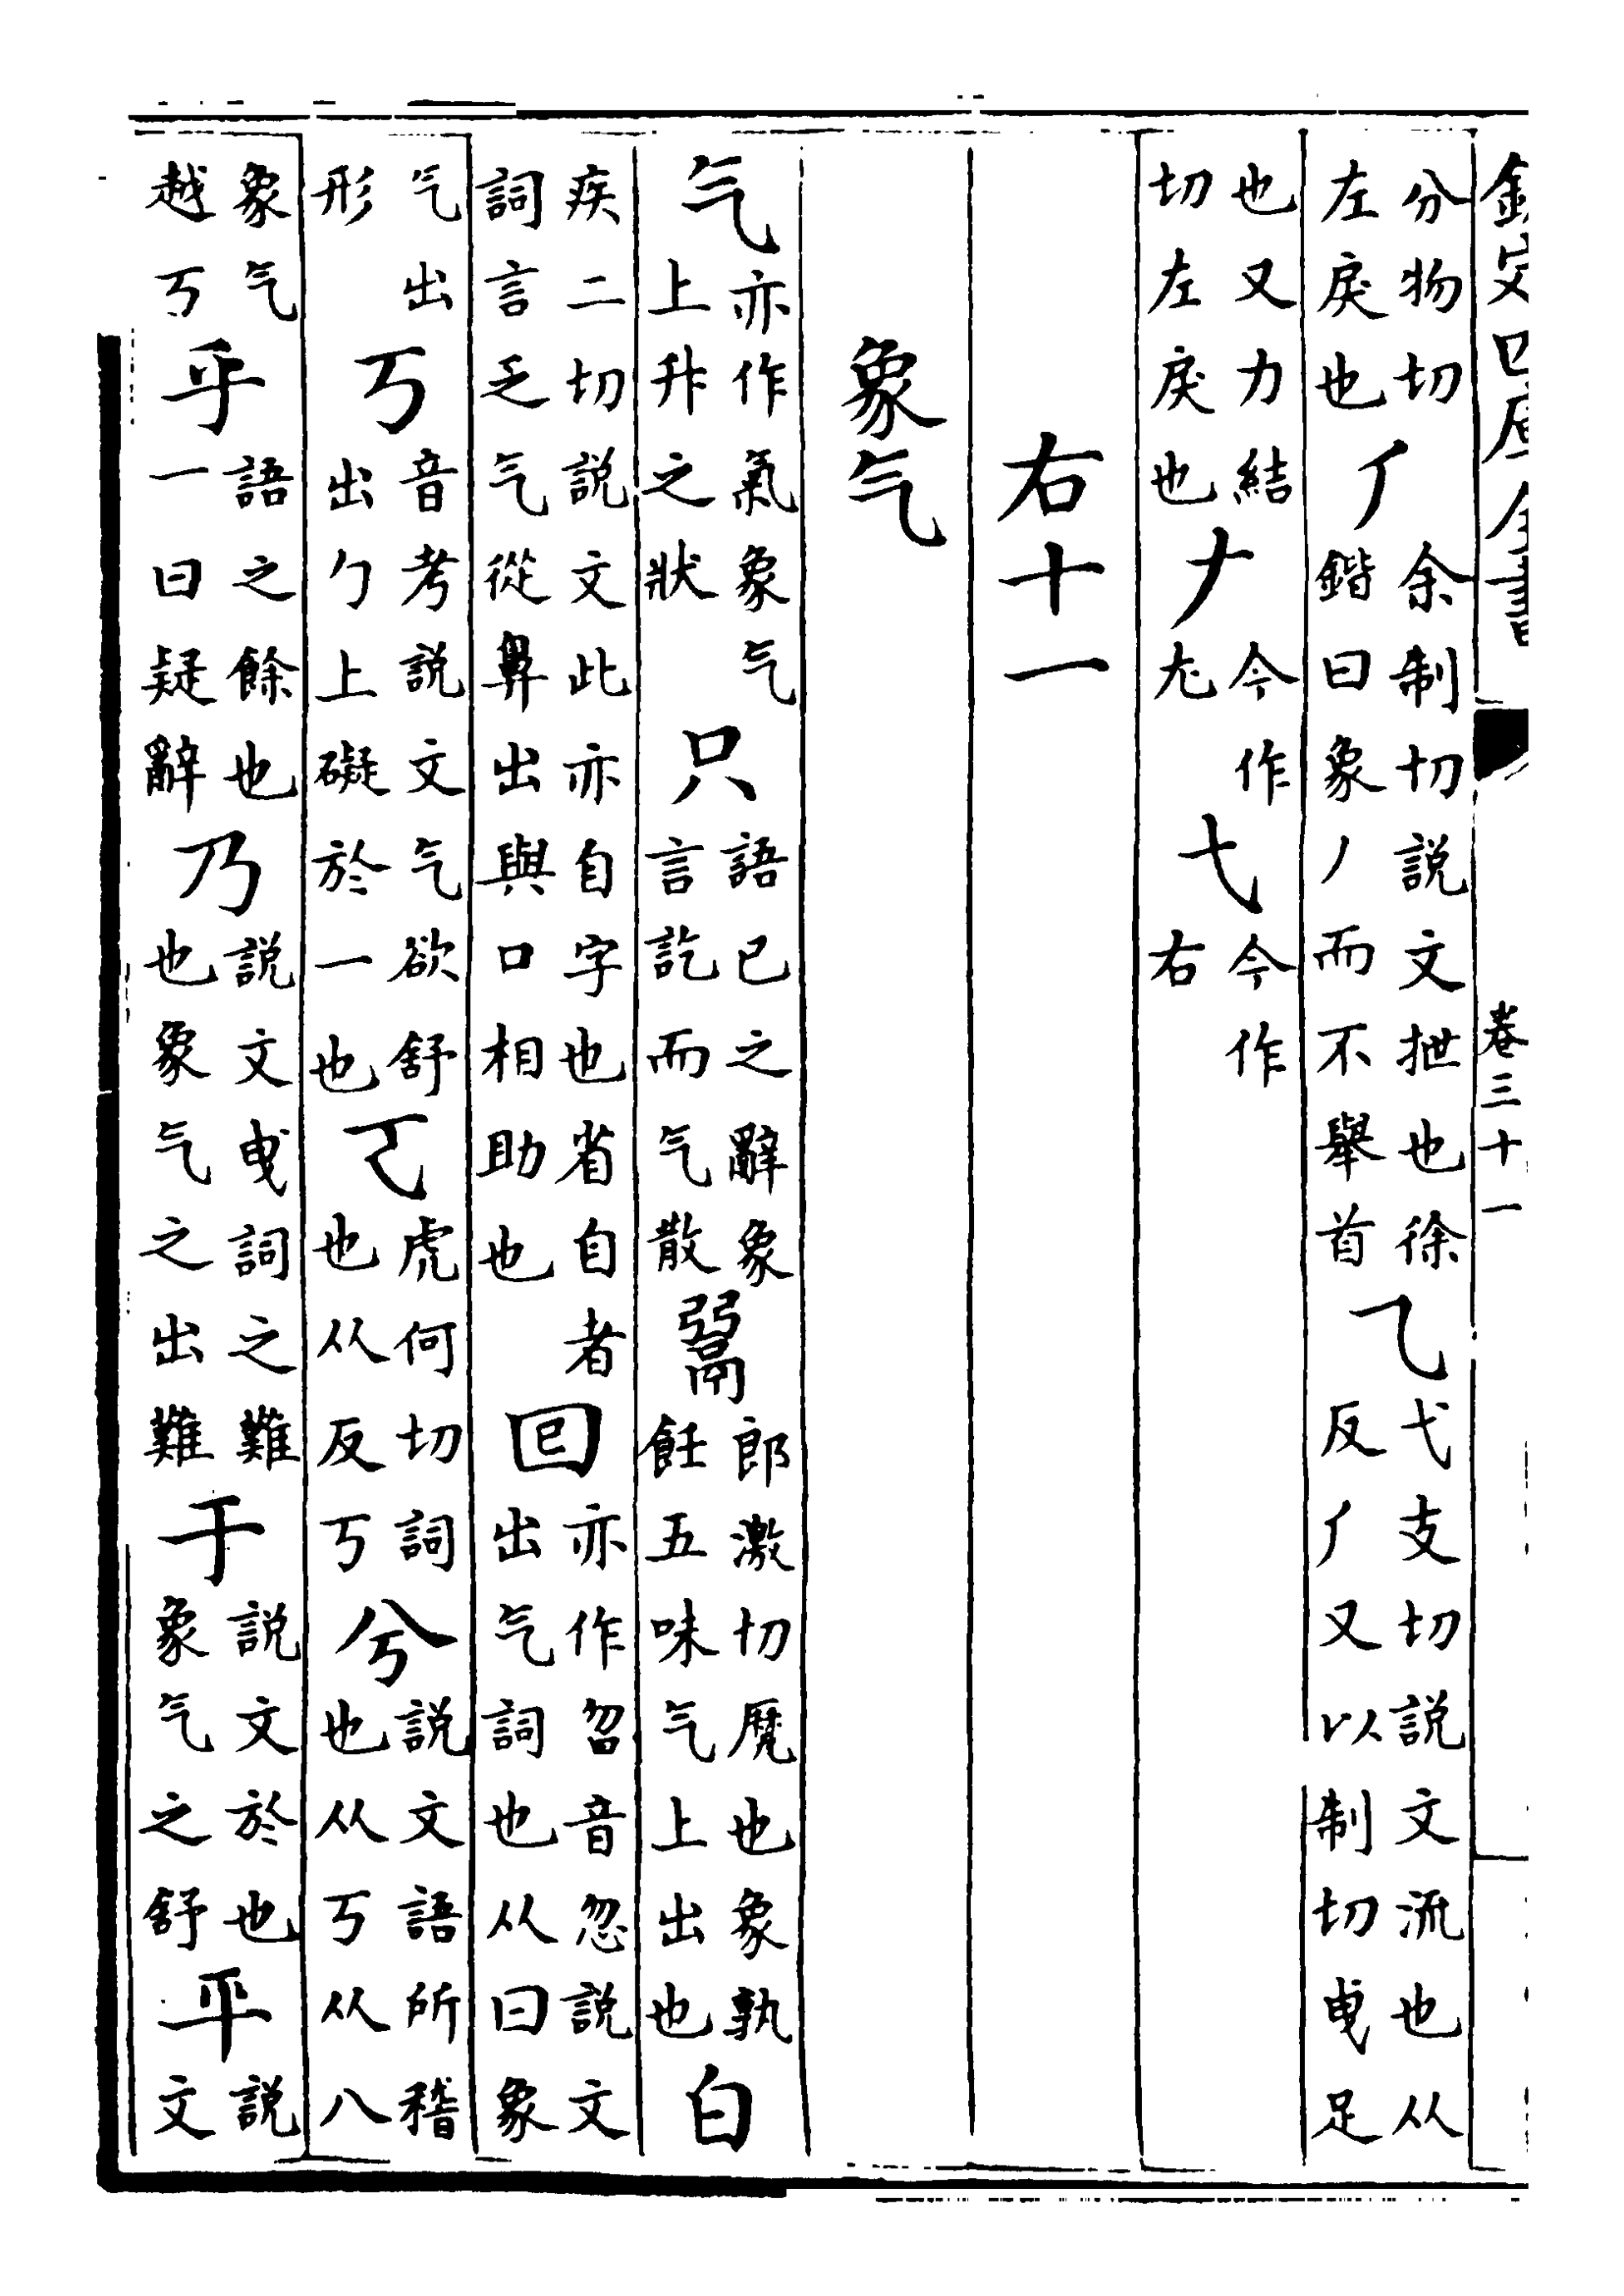 欽定四庫全書 卷三十一
分物切左戾也𠂆余制切説文抴也徐鍇曰象丿而不舉首乁弋支切説文流也从反𠂆又以制切曳足
也又力結切左戾也𠂇今作 今作右
右十一
象气
气亦作氣象气上升之狀只語已之辭象言訖而气散䰜郎激切 也象孰飪五味气上出也白
疾二切説文此亦自字也省自者詞言之气從鼻出與口相助也 亦作曶音忽説文出气詞也从曰象
气出形丂音考説文气欲舒出勹上礙於一也𠀀虎何切詞也从反丂兮説文語所稽也从丂从八
象气越丂乎語之餘也一曰疑辭乃説文曳詞之難也象气之出難于説文於也象气之舒平説文